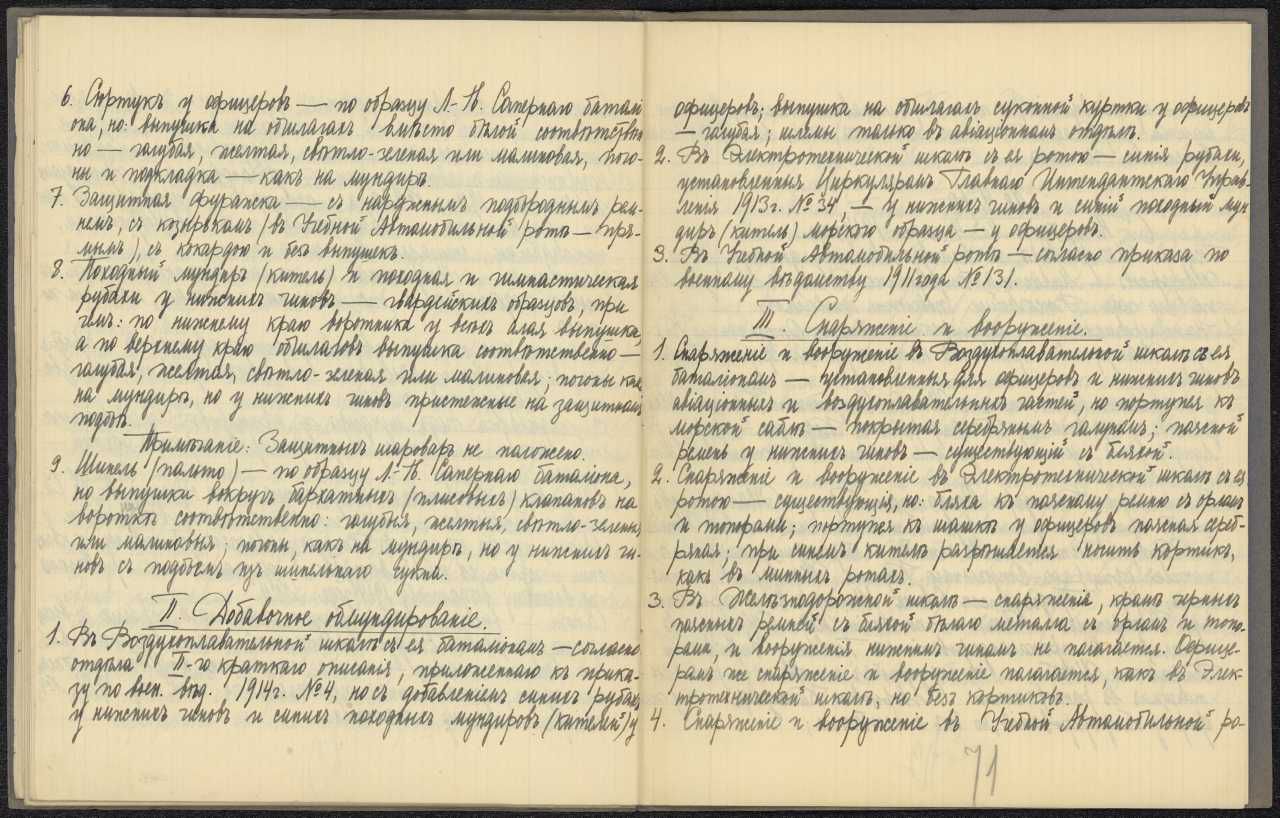 6. Сюртукъ у офицеровъ — по образцу Л-Гв. Сапернаго баталі
она, но: выпушка на обшлагахъ вмѣсто бѣлой соотвѣтствен
но — голубая, желтая, свѣтло-зеленая или малиновая, пого-
ны и подкладка — какъ на мундирѣ.
7. Защитная фуражка — съ наружнымъ подбороднымъ рем-
немъ, съ козырькомъ (въ Учебной Автомобильной ротѣ — пря-
мымъ), съ кокардою и безъ выпушекъ.
8. Походный мундиръ (китель) и походная и гимнастическая
рубахи у нижнихъ чиновъ — гвардейскихъ образцовъ, при
чемъ: по нижнему краю воротника у всѣхъ алая выпушка,
а по верхнему краю обшлаговъ выпушка соотвѣтственно —
голубая, желтая, свѣтло-зеленая или малиновая; погоны как
на мундирѣ, но у нижнихъ чиновъ пристежные на защитномъ
подбоѣ.
Примѣчаніе: Защитныхъ шароваръ не положено.
9. Шинель (пальто) — по образцу Л-Гв. Сапернаго баталіона,
но выпушки вокругъ бархатныхъ (плисовыхъ) клапановъ на
воротникѣ соотвѣтственно: голубыя, желтыя, свѣтло-зеленыя
или малиновыя; погоны, какъ на мундирѣ, но у нижнихъ чи-
новъ съ подбоемъ изъ шинельнаго сукна.
II. Добавочное обмундированіе.
1. Въ Воздухоплавательной школѣ съ ея баталіономъ — согласно
отдѣла II-го краткаго описанія, приложеннаго къ прика-
зу по воен. вѣд. 1914г. №4, но съ добавленіемъ синихъ рубахъ
у нижнихъ чиновъ и синихъ походныхъ мундировъ (кителей) у
офицеровъ; выпушка на обшлагахъ суконной куртки у офицеровъ
— голубая; шлемы только въ авіаціонномъ отдѣлѣ.
2. Въ Электротехнической школѣ съ ея ротою — синія рубахи,
установленныя Циркуляромъ Главнаго Интендантскаго Управ-
ленія 1913г. №34, — у нижнихъ чиновъ и синій походный мун-
диръ (китель) морского образца — у офицеровъ.
3. Въ Учебной Автомобильной ротѣ — согласно приказа по
военному вѣдомству 1911 года №131.
III. Снаряженіе и вооруженіе.
1. Снаряженіе и вооруженіе въ Воздухоплавательной школѣ съ ея
баталіономъ — установленныя для офицеровъ и нижнихъ чиновъ
авіаціонныхъ и воздухоплавательныхъ частей, но портупея къ
морской саблѣ — покрытая серебрянымъ галуномъ; поясной
ремень у нижнихъ чиновъ — существующій съ бляхой.
2. Снаряженіе и вооруженіе въ Электротехнической школѣ съ ея
ротою — существующія, но: бляха къ поясному ремню съ орломъ
и топорами; портупея къ шашкѣ у офицеровъ поясная сереб-
ряная; при синемъ кителѣ разрѣшается носить кортикъ,
какъ въ минныхъ ротахъ.
3. Въ Желѣзнодорожной школѣ — снаряженіе, кромѣ черныхъ
поясныхъ ремней съ бляхой бѣлаго металла съ орломъ и топо-
рами, и вооруженія нижнимъ чинамъ не полагается. Офице-
рамъ же снаряженіе и вооруженіе полагается, какъ въ Элек-
тротехнической школѣ, но безъ кортиковъ.
4. Снаряженіе и вооруженіе въ Учебной Автомобильной ро-
71